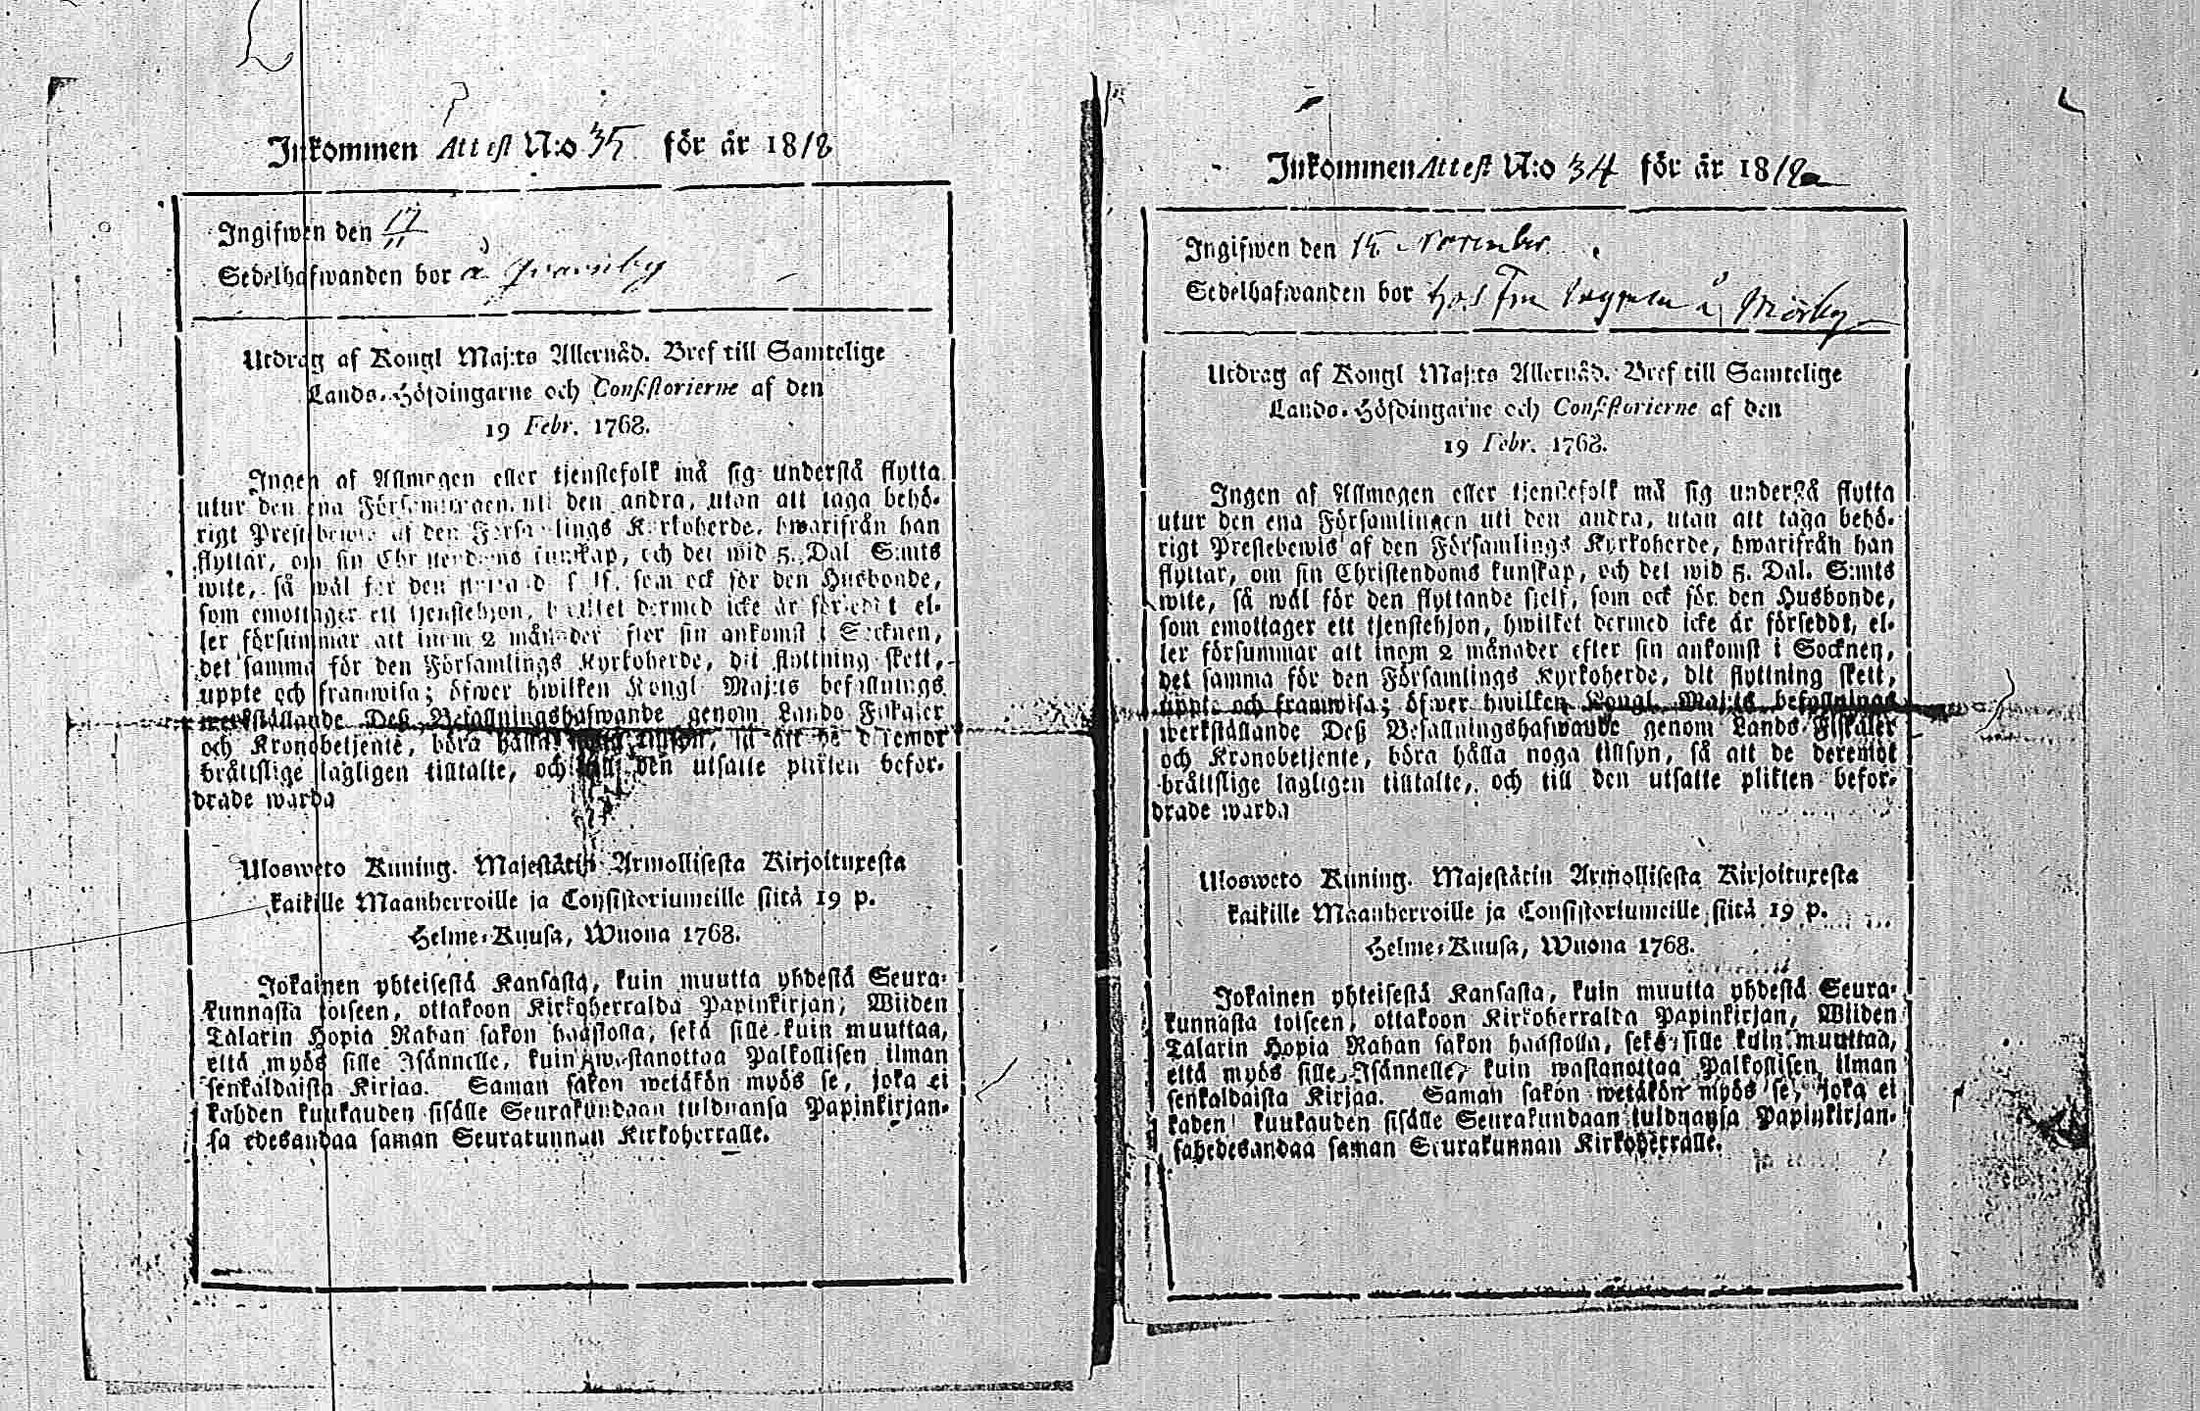 Inkommen Attest N:o 35 för år 1818
Ingifwen den 17/11
Sedelhafwanden bor å
Utdrag af Kongl Maj:ts Allernåd. Bref till Samtelige
Lands-Höfdingarne och Consistorierne af den
19 Febr. 1768.
Ingen af Allmogen eller tjenstefolk må sig understå flytta
utur den ena Församlingen uti den andra, utan att taga behö-
rigt Prestebewis af den Församlings Kyrkoherde, hwarifrån han
flyttar, om sin Christendoms kunskap, och det wid 5. Dal S:mts
wite, så wäl för den flyttande sjelf, som ock för den Husbonde,
som emottager ett tjenstehjon, hwilket dermed icke är förseddt el-
ler försummar att inom 2 månader efter sin ankomst i Socknen,
det samma för den Församlings Kyrkoherde, dit flyttning skett,
uppte och framwisa; öfwer hwilken Kongl Maj:ts befallnings
werkställande Deß Befallningshafwande genom Lands Fiskaler
och Kronobetjente, böra hålla noga tillsyn, så att de deremot
bråttslige lagligen tilltalte, och till den utsatte plikten befor-
drade warda
Ulosweto Kuning. Majestätin Armollisesta Kirjoituxesta
kaikille Maanherroille ja Consistoriumeille siitä 19 p.
Helme-Kuusa, Wuona 1768.
Jokainen yhteisestä Kansasta, kuin muutta yhdestä Seura-
kunnasta toiseen, ottakoon Kirkoherralda Papinkirjan; Wiiden
Talarin Hopia Rahan sakon haastolla, sekä sille kuin muuttaa,
että myös sille Isännelle, kuin wastanottaa Palkollisen ilman
senkaldaista Kirjaa. Saman sakon wetäkön myös se, joka ei
kahden kuukauden sisälle Seurakundaan tulduansa Papinkirjan-
sa edesandaa saman Seurakunnan Kirkoherralle.
Inkommen Attest N:o 34 för år 1818
Ingifwen den 15 November
Sedelhafwanden bor hos å Mörby
Utdrag af Kongl Maj:ts Allernåd. Bref till Samtelige
Lands-Höfdingarne och Consistorierne af den
19 Febr. 1768.
Ingen af Allmogen eller tjenstefolk må sig understå flytta
utur den ena Församlingen uti den andra, utan att taga behö-
rigt Prestebewis af den Församlings Kyrkoherde, hwarifrån han
flyttar, om sin Christendoms kunskap, och det wid 5. Dal. S:mts
wite, så wäl för den flyttande sjelf, som ock för den Husbonde,
som emottager ett tjenstehjon, hwilket dermed icke är förseddt, el-
ler försummar att inom 2 månader efter sin ankomst i Socknen,
det samma för den Församlings Kyrkoherde, dit flyttning skett,
uppte och framwisa; öfwer hwilken Kongl Maj:ts befallnings
werkställande Deß Befallningshafwande genom Lands-Fiskaler
och Kronobetjente, böra hålla noga tillsyn, så att de deremot
bråttslige lagligen tilltalte, och till den utsatte plikten befor-
drade warda
Ulosweto Kuning. Majestätin Armollisesta Kirjoituxesta
kaikille Maanherroille ja Consistoriumeille siitä 19 p.
Helme-Kuusa, Wuona 1768.
Jokainen yhteisestä Kansasta, kuin muutta yhdestä Seura-
kunnasta toiseen, ottakoon Kirkoherralda Papinkirjan, Wiiden
Talarin Hopia Rahan sakon haastolla, sekä sille kuin muuttaa,
että myös sille Isännelle, kuin wastanottaa Palkollisen ilman
senkaldaista Kirjaa. Saman sakon wetäkön myös se, joka ei
kaden kuukauden sisälle Seurakundaan tulduansa Papinkirjan-
sahedesandaa saman Seurakunnan Kirkoherralle.